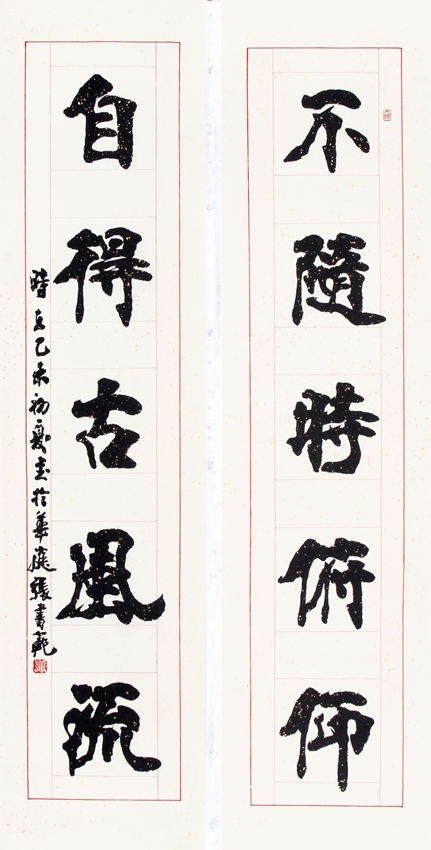 不隨時俯仰
自得古風流
時在乙未初夏書於華庭張書範